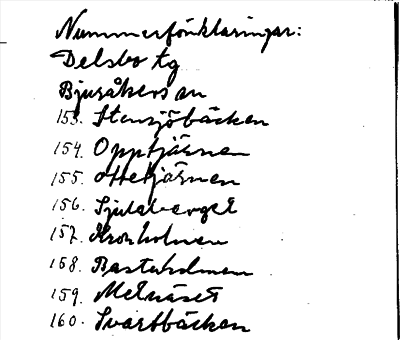 Nummerförklaringar:
Delsbo tg
Bjuråkers sn
153. Stensjöbäcken
154. Opptjärnen
155. Attetjärnen
156. Sjulsberget
157. Kronholmen
158. Bastuholmen
159. Melnäset
160. Svartbäcken